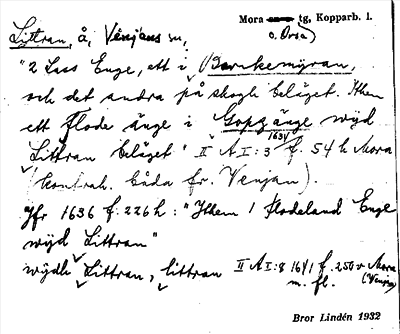 Mora tg, Kopparb. l.
o. Orsa)
Littran, å, Venjans sn,
"2 Lass Enge, ett i Barckemyran,
och det andra på skogh beläget. Ithem
ett flode änge i Gopzänge wijd
1634
Littran beläget" II A I:3 f. 54 h Mora
(kontrah. båda fr. Venjan).
Jfr 1636 f. 226 h: "Ithem 1 flodeland Enge
wijd Littran"
wijdh Littran, littran II A I:8 1641 f. 250 v Mora
m. fl. (Venjan)
Bror Lindén 1932